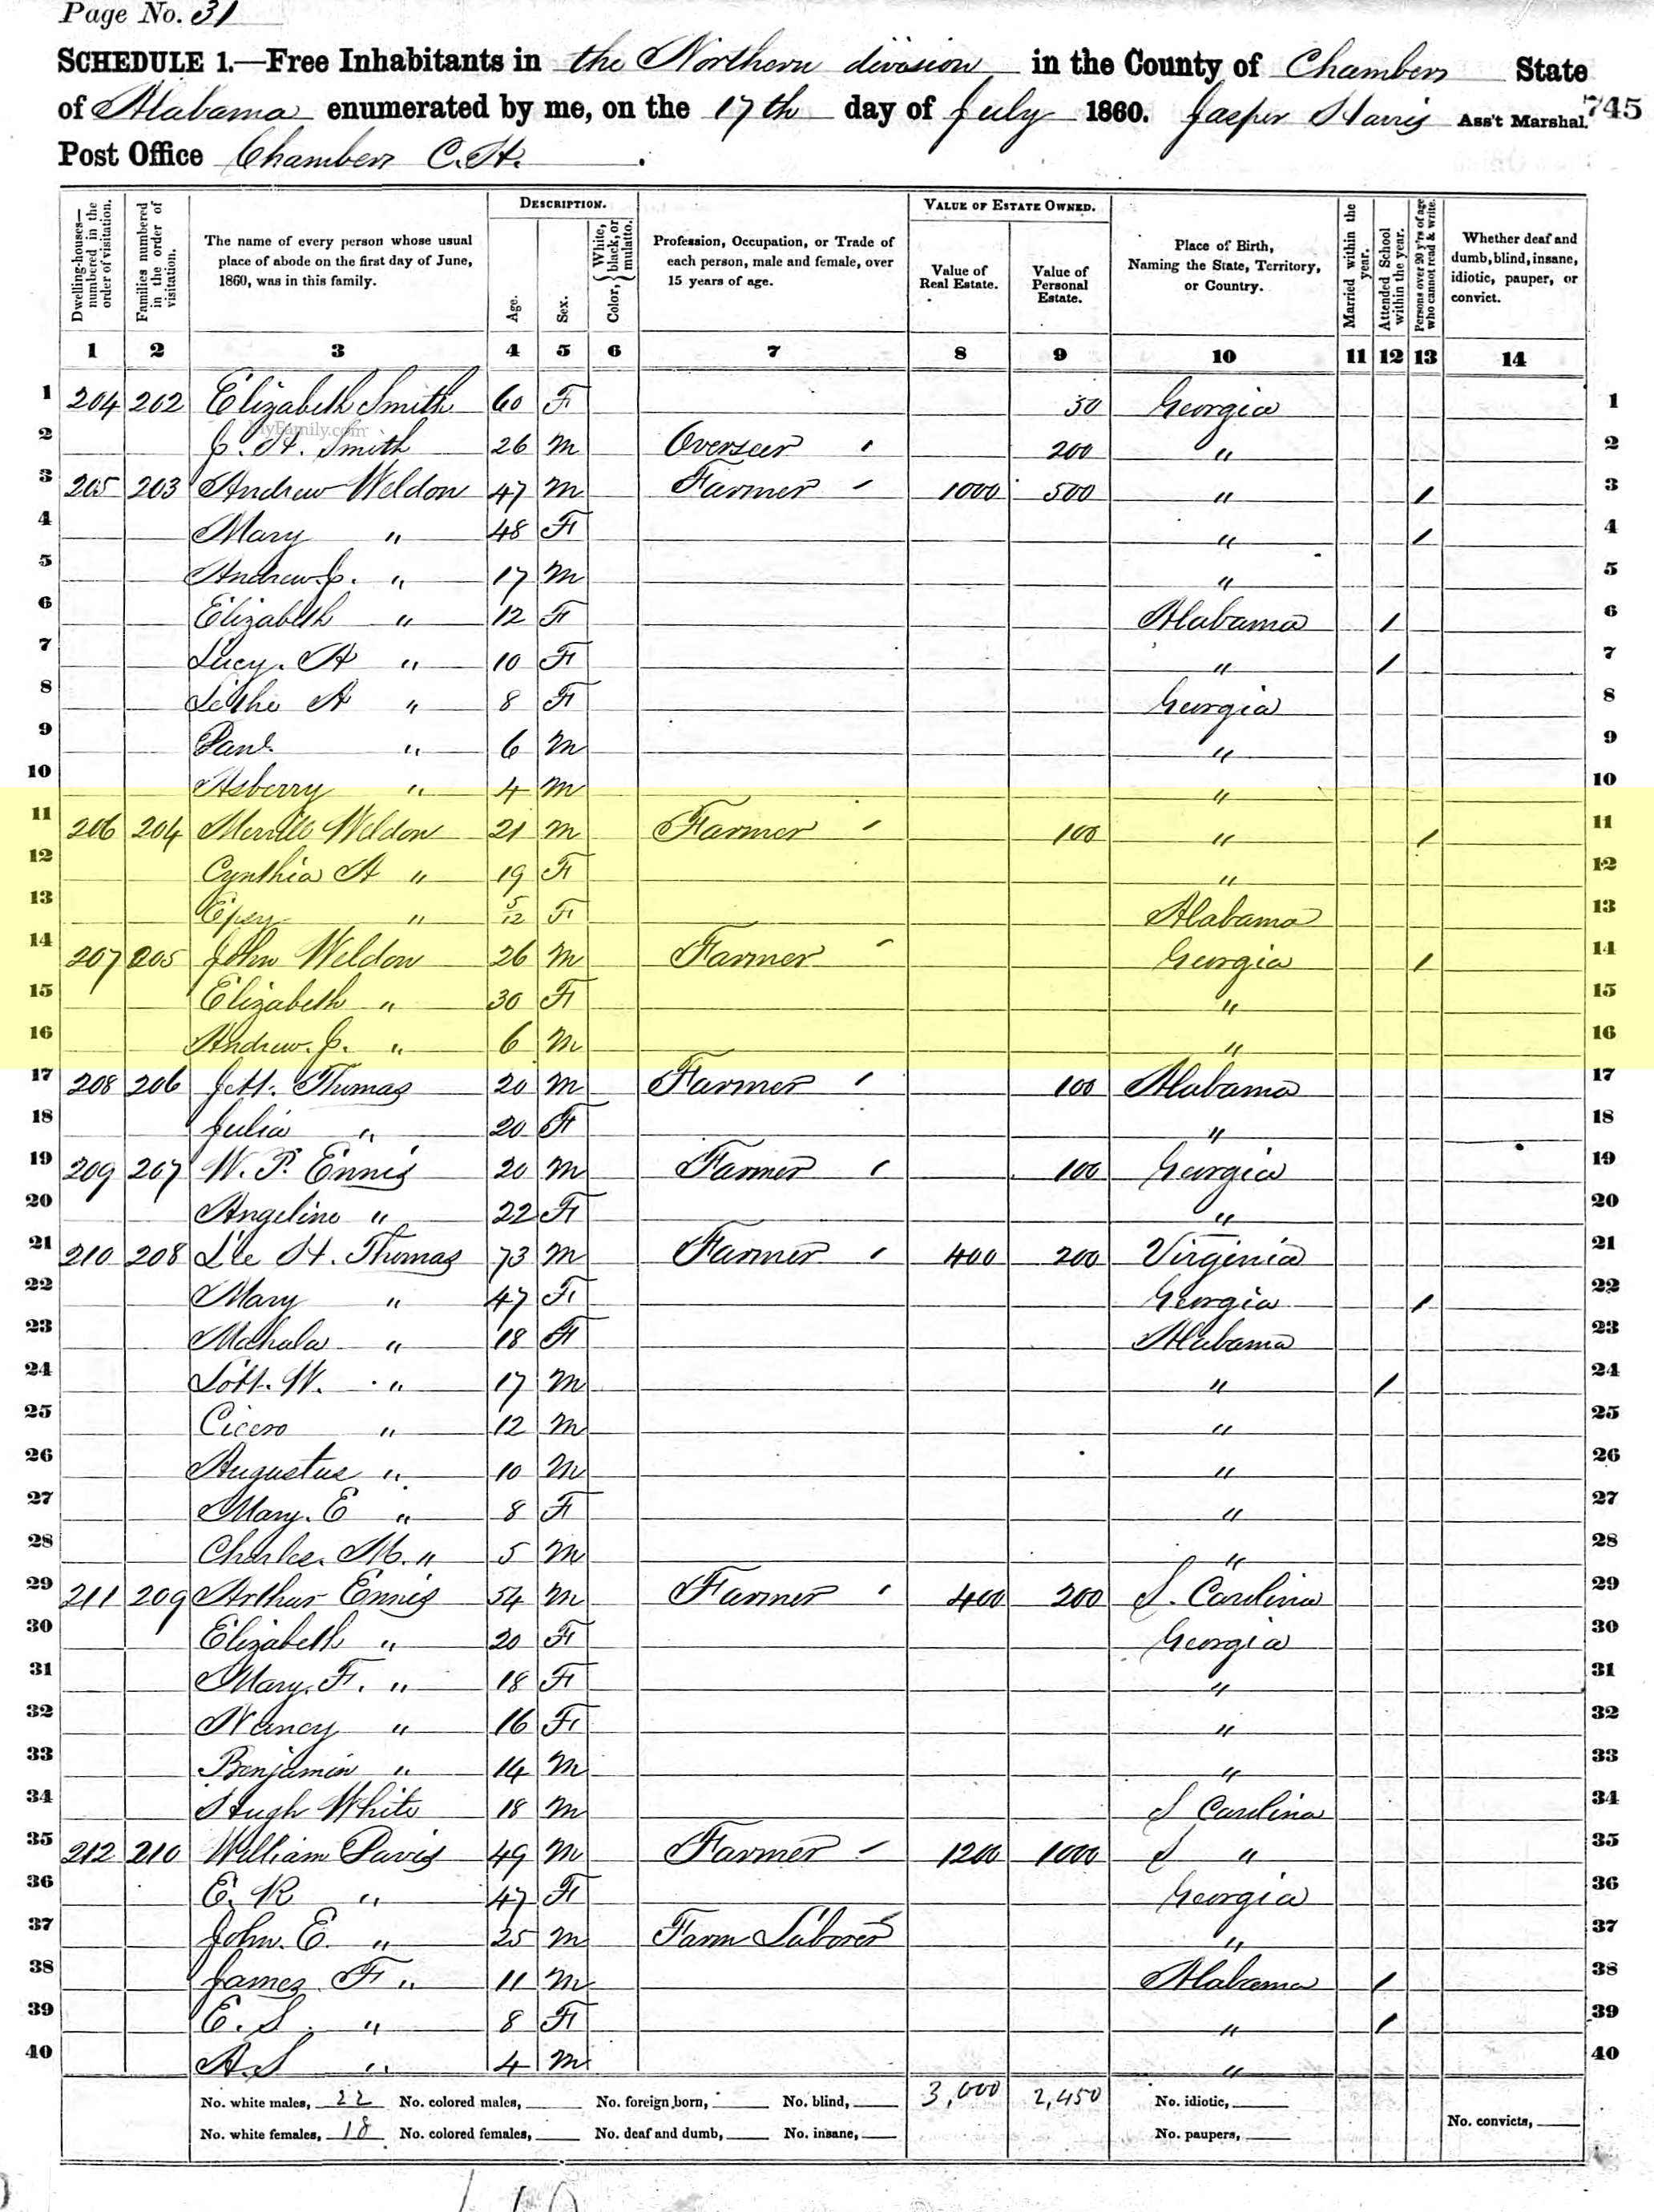 Page No. 31
SCHEDULE 1.—Free Inhabitants in the Northern division in the County of Chambers State
of Alabama enumerated by me, on the 17th day of July 1860. Jasper Harris Ass't Marshal. 745
Post Office Chambers C.H.
Dwelling-houses—numbered in the order of visitation. Families numbered in the order of visitation. The name of every person whose usual place of abode on the first day of June, 1860, was in this family. DESCRIPTION. Age. Sex. Color, {White, black, or mulatto. Profession, Occupation, or Trade of each person, male and female, over 15 years of age. VALUE OF ESTATE OWNED. Value of Real Estate. Value of Personal Estate. Place of Birth, Naming the State, Territory, or Country. Married within the year. Attended School within the year. Persons over 20 y'rs of age who cannot read & write. Whether deaf and dumb, blind, insane, idiotic, pauper, or convict.
1 2 3 4 5 6 7 8 9 10 11 12 13 14
1 204 202 Elizabeth Smith 60 F 50 Georgia 1
MyFamily.com
2 J. H. Smith 26 M Overseer 200 " 2
3 205 203 Andrew Weldon 47 M Farmer 1000 500 " / 3
4 Mary " 48 F " / 4
5 Andrew J. " 17 M " 5
6 Elizabeth " 12 F Alabama / 6
7 Lucy. A " 10 F " / 7
8 A " 8 F Georgia 8
9 Paul " 6 M " 9
10 Asberry " 4 M " 10
11 206 204 Merrill Weldon 21 M Farmer 100 " / 11
12 Cynthia A " 19 F " 12
13 Epsy " 5/12 F Alabama 13
14 207 205 John Weldon 26 M Farmer Georgia / 14
15 Elizabeth " 30 F " 15
16 Andrew. J. " 6 M " 16
17 208 206 Thomas 20 M Farmer 100 Alabama 17
18 Julia " 20 F " 18
19 209 207 W. P. Ennis 20 M Farmer 100 Georgia 19
20 Angeline " 22 F " 20
21 210 208 H. Thomas 73 M Farmer 400 200 Virginia 21
22 Mary " 47 F Georgia / 22
23 Mahala " 18 F Alabama 23
24 Lott. W. " 17 M " / 24
25 Cicero " 12 M " 25
26 Augustus " 10 M " 26
27 Mary. E " 8 F " 27
28 Charles. M. " 5 M " 28
29 211 209 Arthur Ennis 54 M Farmer 400 200 S. Carolina 29
30 Elizabeth " 20 F Georgia 30
31 Mary. F. " 18 F " 31
32 Nancy " 16 F " 32
33 Benjamin " 14 M " 33
34 Hugh White 18 M S Carolina 34
35 212 210 William Davis 49 M Farmer 1200 1000 S " 35
36 E. R " 47 F Georgia 36
37 John. E. " 25 M Farm Laborer " 37
38 James F " 11 M Alabama / 38
39 E. S. " 8 F " / 39
40 A. S " 4 M " 40
No. white males, 22 No. colored males, No. foreign born, No. blind, 3,000 2,450 No. idiotic, No. convicts,
No. white females, 18 No. colored females, No. deaf and dumb, No. insane, No. paupers,